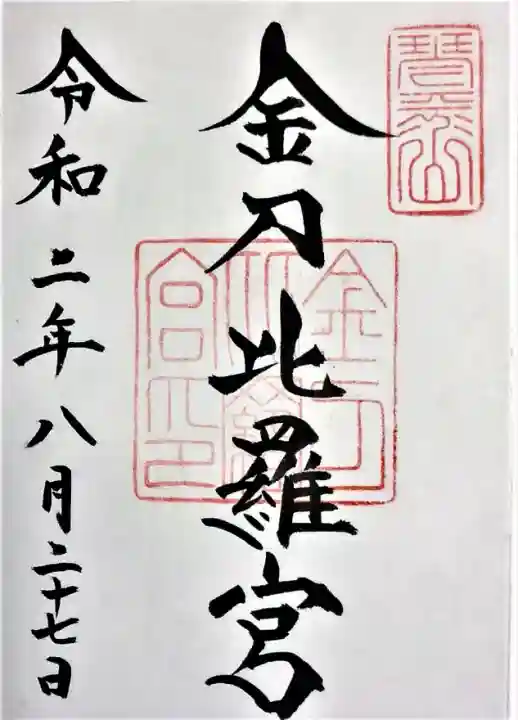 琴平山
金刀比羅宮
金刀比羅宮印
令和二年八月二十七日